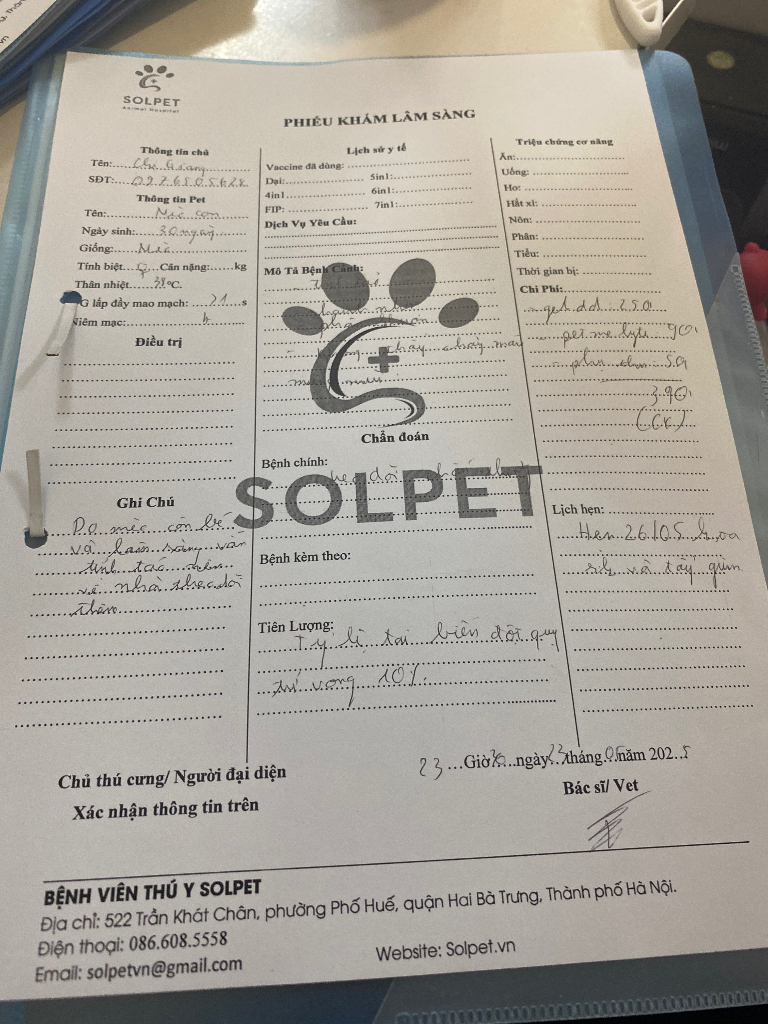 SOLPET
Animal Hospital
PHIẾU KHÁM LÂM SÀNG
Thông tin chủ
Tên: Chị Giang
SĐT:
Thông tin Pet
Tên: Mèo con
Ngày sinh: 30 ngày
Giống: Mèo
Tính biệt: Cân nặng: kg
Thân nhiệt °C.
G lấp đầy mao mạch: s
Niêm mạc:
Điều trị
Ghi Chú
Do mèo còn bé
và lâm sàng vẫn
tỉnh táo nên
về nhà theo dõi
thêm
Lịch sử y tế
Vaccine đã dùng:
Dại: 5in1:
4in1 6in1:
FIP: 7in1:
Dịch Vụ Yêu Cầu:
Mô Tả Bệnh Cảnh:
- không chạy chảy máu
Chẩn đoán
Bệnh chính:
SOLPET
Bệnh kèm theo:
Tiên Lượng:
Tỷ lệ tai biến đột quỵ
tử vong 10%.
Triệu chứng cơ năng
Ăn:
Uống:
Ho:
Hắt xì:
Nôn:
Phân:
Tiểu:
Thời gian bị:
Chi Phí:
- gel dd: 250
- petmelyte: 90
- phụ thu: 50
390
(CK)
Lịch hẹn:
Hẹn 26/05
và tẩy giun
23 Giờ 30 ngày 23 tháng 05 năm 2025
Chủ thú cưng/ Người đại diện
Xác nhận thông tin trên
Bác sĩ/ Vet
BỆNH VIỆN THÚ Y SOLPET
Địa chỉ: 522 Trần Khát Chân, phường Phố Huế, quận Hai Bà Trưng, Thành phố Hà Nội.
Điện thoại: 086.608.5558
Email: solpetvn@gmail.com
Website: Solpet.vn